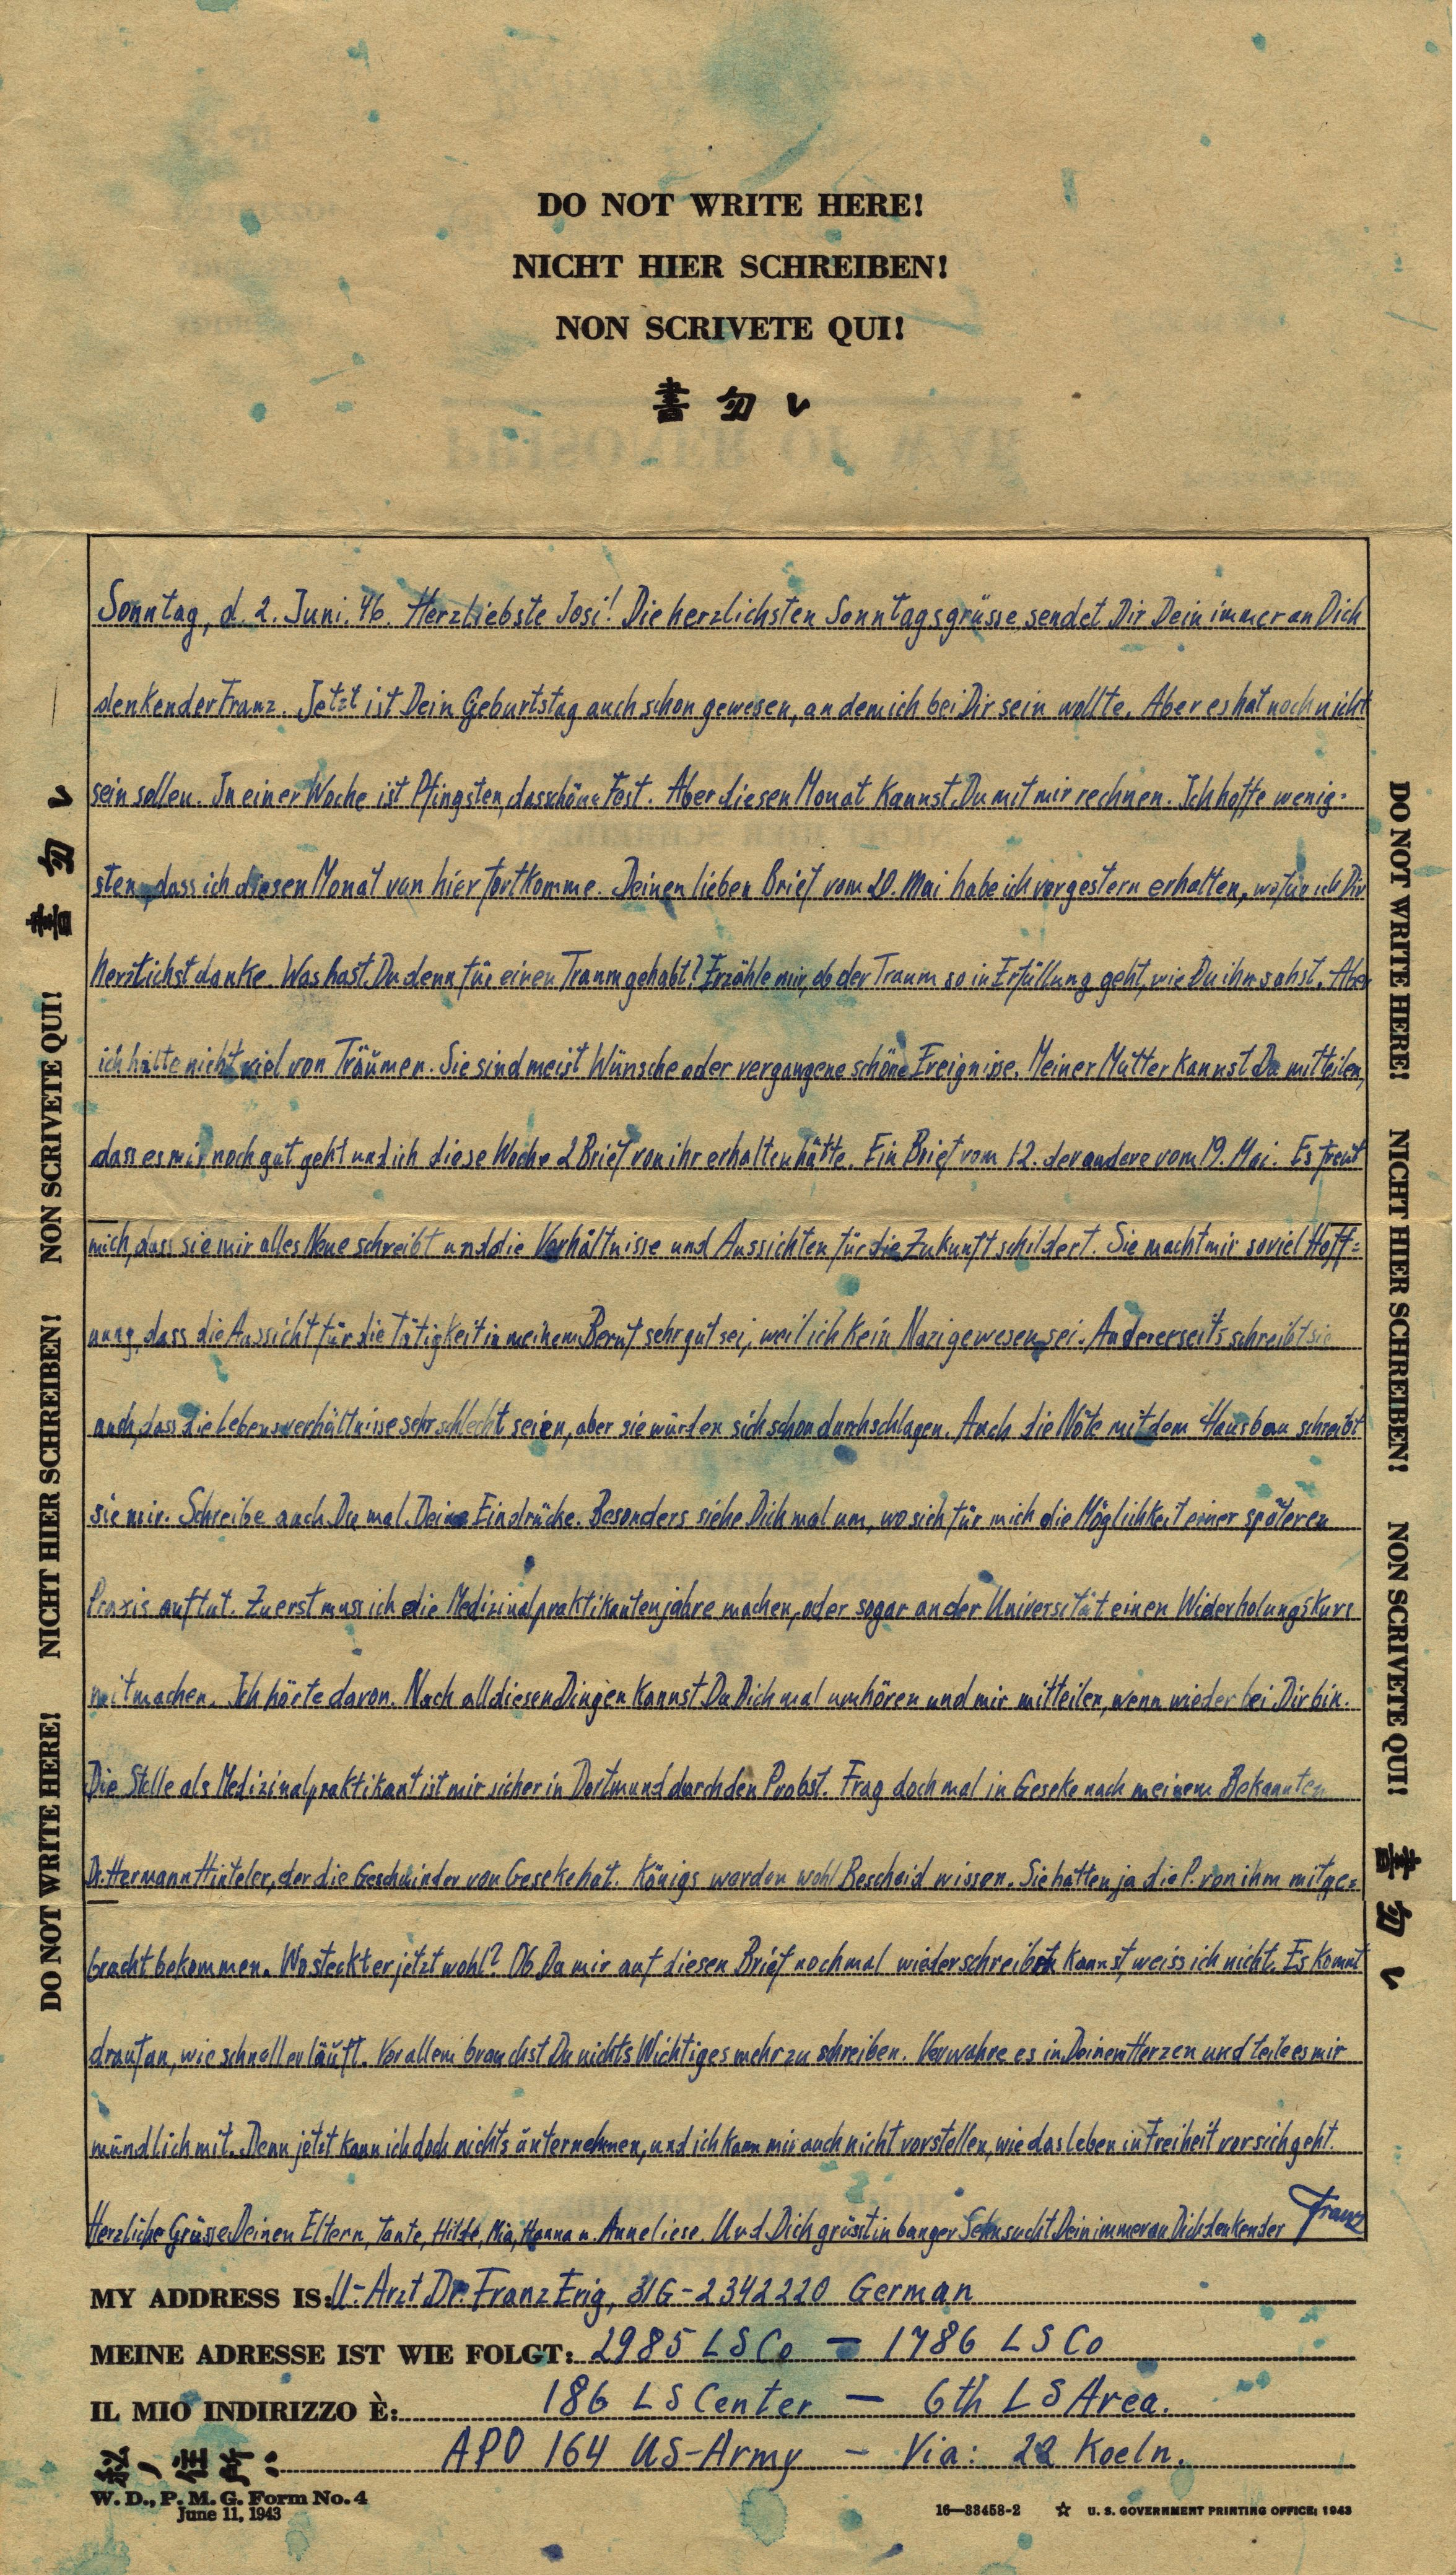 DO NOT WRITE HERE!
NICHT HIER SCHREIBEN!
NON SCRIVETE QUI!
書 勿 レ
Sonntag, d. 2. Juni. 46. Herzliebste Josi! Die herzlichsten Sonntagsgrüsse sendet Dir Dein immer an Dich
denkender Franz. Jetzt ist Dein Geburtstag auch schon gewesen, an dem ich bei Dir sein wollte. Aber es hat noch nicht
sein sollen. In einer Woche ist Pfingsten, das schöne Fest. Aber diesen Monat kannst Du mit mir rechnen. Ich hoffe wenig-
sten, dass ich diesen Monat von hier fortkomme. Deinen lieben Brief vom 20. Mai habe ich vorgestern erhalten, wofür ich Dir
herzlichst danke. Was hast Du denn für einen Traum gehabt? Erzähle mir, ob der Traum so in Erfüllung geht, wie Du ihn sahst. Aber
ich halte nicht viel von Träumen. Sie sind meist Wünsche oder vergangene schöne Ereignisse. Meiner Mutter kannst Du mitteilen,
dass es mir noch gut geht und ich diese Woche 2 Brief von ihr erhalten hätte. Ein Brief vom 12. der andere vom 19. Mai. Es freut
mich, dass sie mir alles Neue schreibt und die Verhältnisse und Aussichten für die Zukunft schildert. Sie macht mir soviel Hoff-
nung, dass die Aussicht für die Tätigkeit in meinem Beruf sehr gut sei, weil ich kein Nazi gewesen sei. Andererseits schreibt sie
auch, dass die Lebensverhältnisse sehr schlecht seien, aber sie würden sich schon durchschlagen. Auch die Nöte mit dem Hausbau schreibt
sie mir. Schreibe auch Du mal Deine Eindrücke. Besonders siehe Dich mal um, wo sich für mich die Möglichkeit einer späteren
Praxis auftut. Zuerst muss ich die Medizinalpraktikantenjahre machen, oder sogar an der Universität einen Widerholungskurs
mitmachen. Ich hörte davon. Nach all diesen Dingen kannst Du Dich mal umhören und mir mitteilen, wenn wieder bei Dir bin.
Die Stelle als Medizinalpraktikant ist mir sicher in Dortmund durch den Probst. Frag doch mal in Geseke nach meinem Bekannten
Dr. Hermann Hinteler, der die Geschwinder von Geseke hat. Königs werden wohl Bescheid wissen. Sie hatten ja die P. von ihm mitge-
bracht bekommen. Wo steckt er jetzt wohl? Ob Du mir auf diesen Brief nochmal wiederschreiben kannst, weiss ich nicht. Es kommt
drauf an, wie schnell er läuft. Vor allem brauchst Du nichts Wichtiges mehr zu schreiben. Verwahre es in Deinem Herzen und teile es mir
mündlich mit. Denn jetzt kann ich doch nichts unternehmen, und ich kann mir auch nicht vorstellen, wie das Leben in Freiheit vor sich geht.
Herzliche Grüsse Deinen Eltern, Tante, Hilde, Mia, Hanna u. Anneliese. Und Dich grüsst in banger Sehnsucht Dein immer an Dich denkender Franz
DO NOT WRITE HERE! NICHT HIER SCHREIBEN! NON SCRIVETE QUI! 書 勿 レ
DO NOT WRITE HERE! NICHT HIER SCHREIBEN! NON SCRIVETE QUI! 書 勿 レ
MY ADDRESS IS: U-Arzt Dr. Franz Erig, 31G-2342220 German
MEINE ADRESSE IST WIE FOLGT: 2985 LS Co — 1786 LS Co
IL MIO INDIRIZZO È: 186 LS Center — 6th LS Area.
APO 164 US-Army — Via: 22 Koeln.
W. D., P. M. G. Form No. 4
June 11, 1943
16—38458-2 ☆ U. S. GOVERNMENT PRINTING OFFICE: 1943